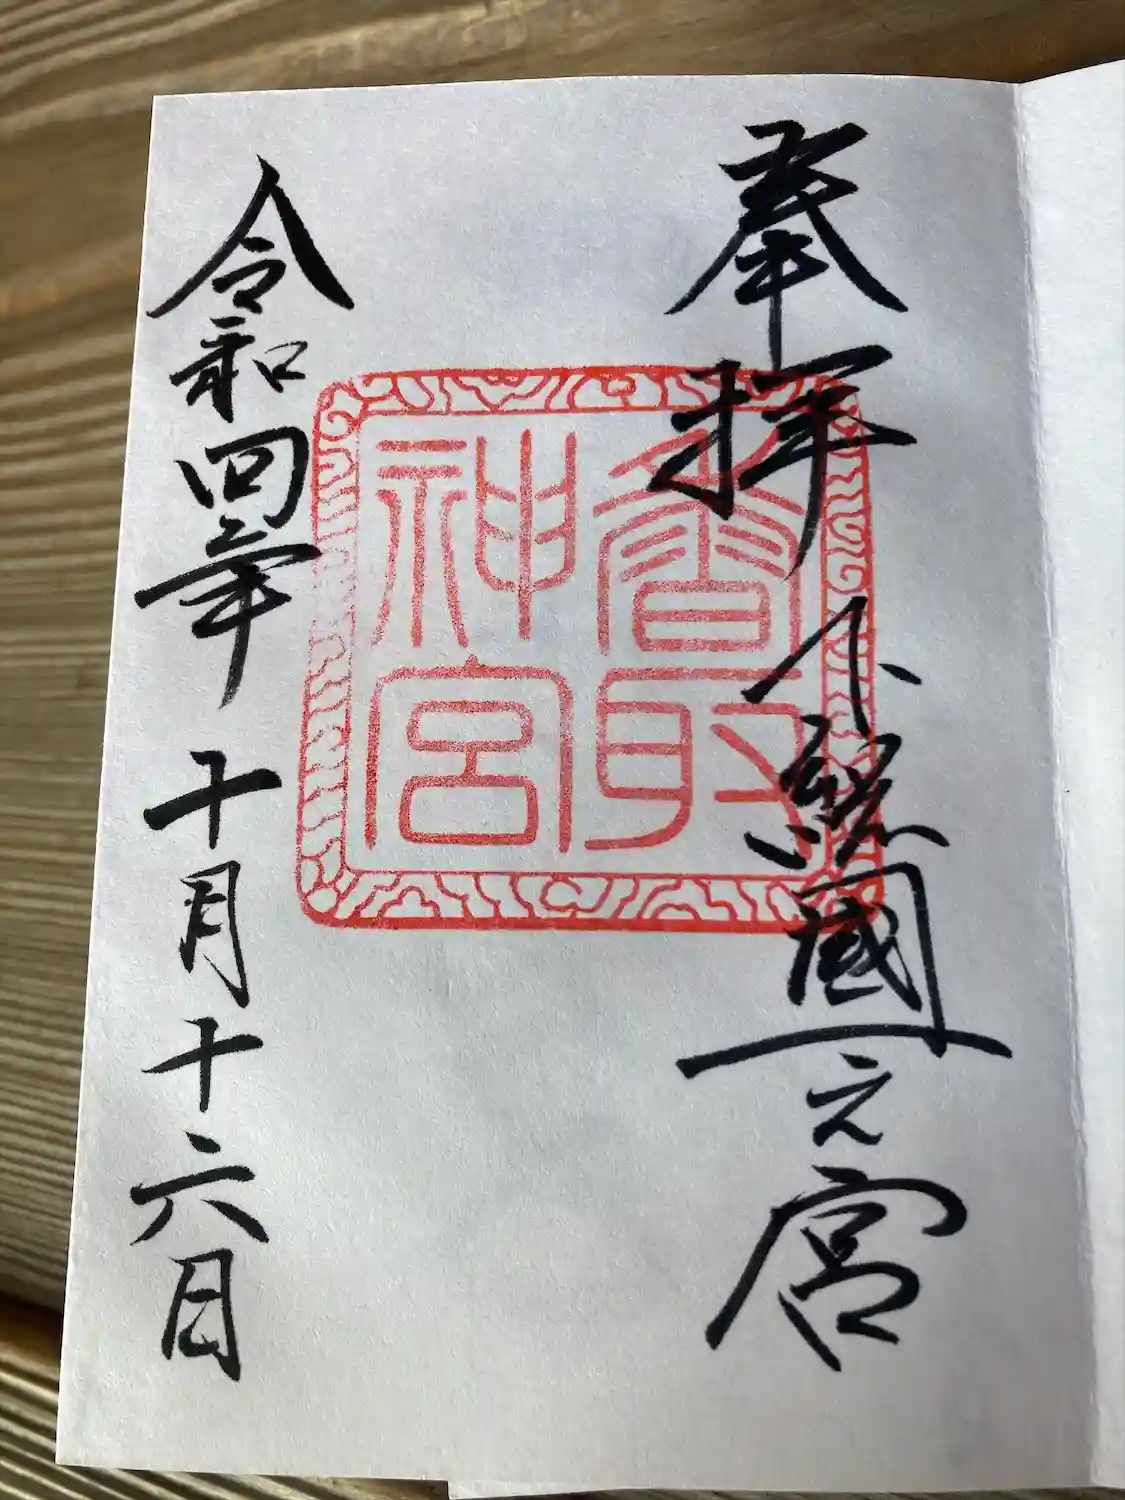 奉拝 下總國一之宮
香取
神宮
令和四年 十月十六日